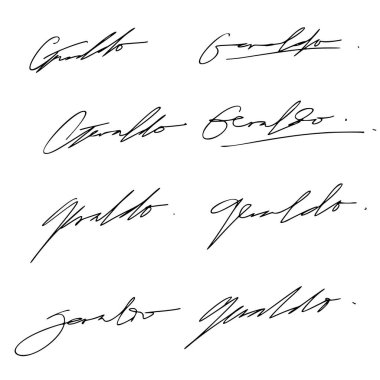 Geraldo Geraldo.
Geraldo Geraldo.
geraldo. geraldo.
geraldo geraldo.